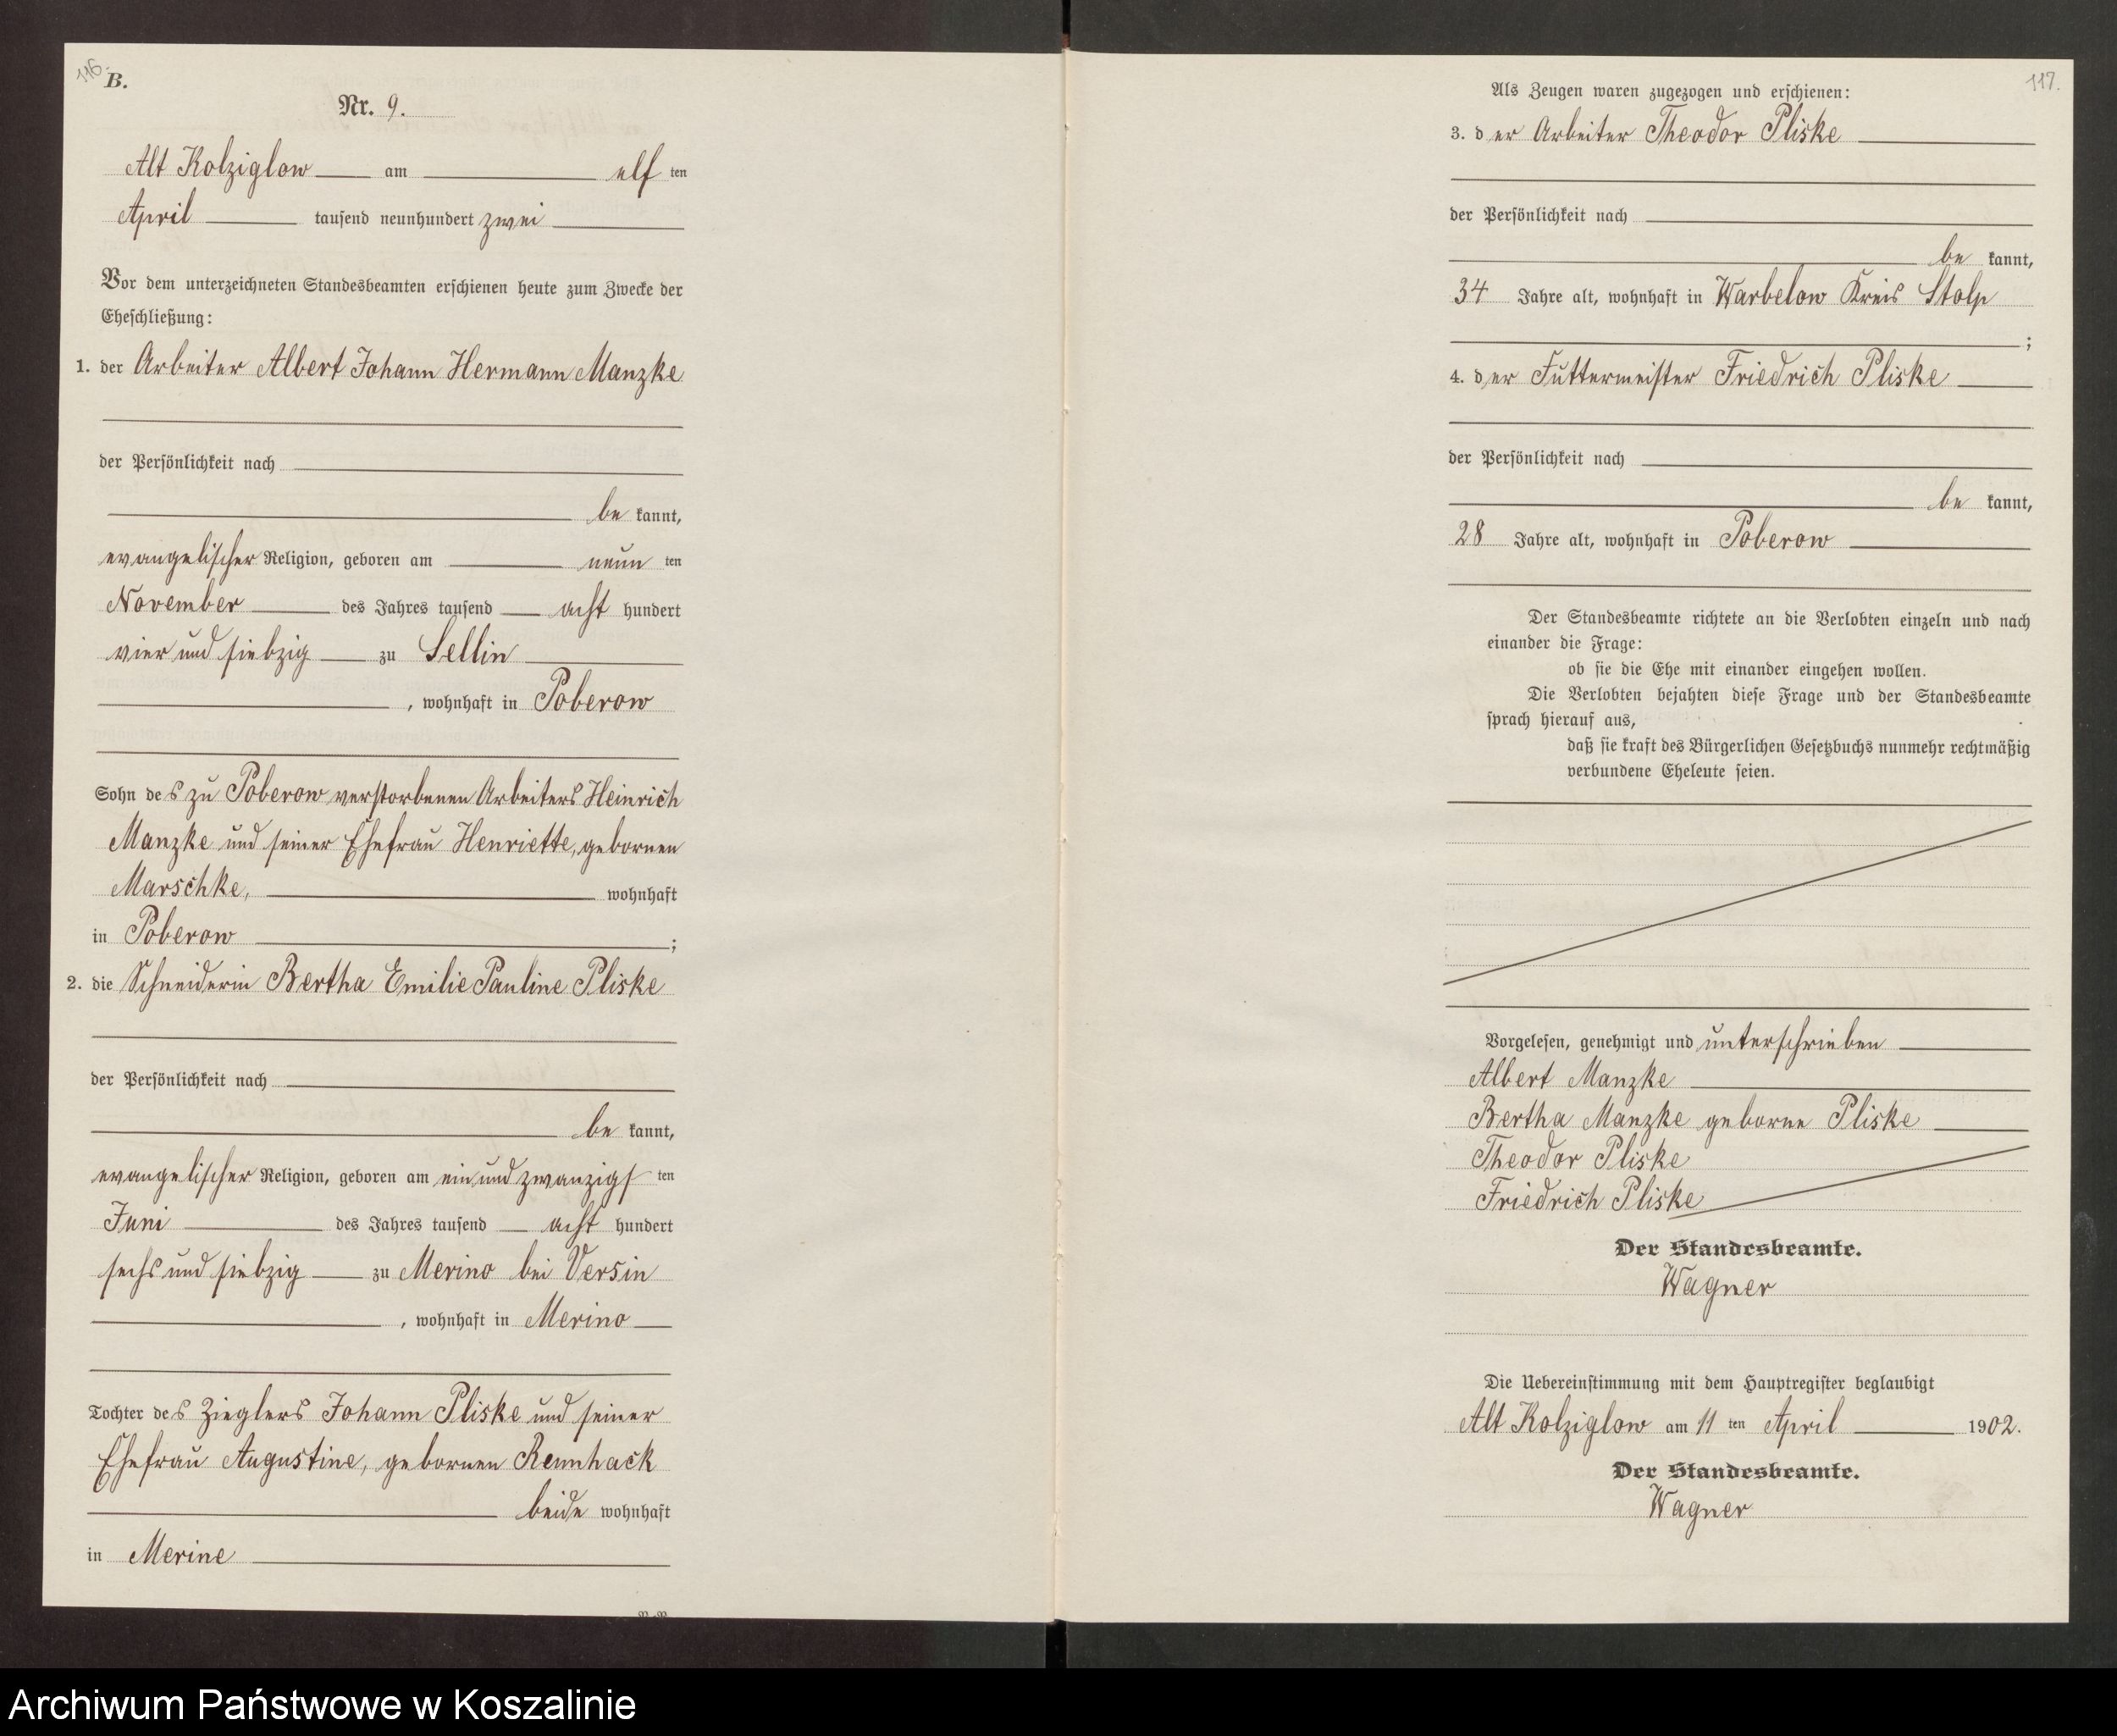 116.
B.
Nr. 9.
Alt Kolziglow am elf ten
April tausend neunhundert zwei
Vor dem unterzeichneten Standesbeamten erschienen heute zum Zwecke der
Eheschließung:
1. der Arbeiter Albert Johann Hermann Manzke
der Persönlichkeit nach
be kannt,
evangelischer Religion, geboren am neun ten
November des Jahres tausend acht hundert
vier und siebzig zu Sellin
, wohnhaft in Poberow
Sohn des zu Poberow verstorbenen Arbeiters Heinrich
Manzke und seiner Ehefrau Henriette, gebornen
Marschke, wohnhaft
in Poberow ;
2. die Schneiderin Bertha Emilie Pauline Pliske
der Persönlichkeit nach
be kannt,
evangelischer Religion, geboren am ein und zwanzigs ten
Juni des Jahres tausend acht hundert
sechs und siebzig zu Merino bei Versin
, wohnhaft in Merino
Tochter des Zieglers Johann Pliske und seiner
Ehefrau Augustine, gebornen Rennhack
beide wohnhaft
in Merine
117.
Als Zeugen waren zugezogen und erschienen:
3. der Arbeiter Theodor Pliske
der Persönlichkeit nach
be kannt,
34 Jahre alt, wohnhaft in Warbelow Kreis Stolp
;
4. der Futtermeister Friedrich Pliske
der Persönlichkeit nach
be kannt,
28 Jahre alt, wohnhaft in Poberow
Der Standesbeamte richtete an die Verlobten einzeln und nach
einander die Frage:
ob sie die Ehe mit einander eingehen wollen.
Die Verlobten bejahten diese Frage und der Standesbeamte
sprach hierauf aus,
daß sie kraft des Bürgerlichen Gesetzbuchs nunmehr rechtmäßig
verbundene Eheleute seien.
Vorgelesen, genehmigt und unterschrieben
Albert Manzke
Bertha Manzke geborne Pliske
Theodor Pliske
Friedrich Pliske
Der Standesbeamte.
Wagner
Die Uebereinstimmung mit dem Hauptregister beglaubigt
Alt Kolziglow am 11 ten April 1902.
Der Standesbeamte.
Wagner
Archiwum Państwowe w Koszalinie